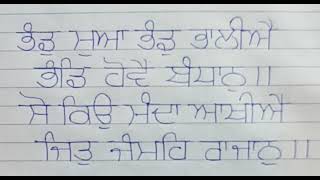 ਭੰਡੁ ਮੁਆ ਭੰਡੁ ਭਾਲੀਐ
ਭੰਡਿ ਹੋਵੈ ਬੰਧਾਨੁ॥
ਸੋ ਕਿਉ ਮੰਦਾ ਆਖੀਐ
ਜਿਤੁ ਜੰਮਹਿ ਰਾਜਾਨ॥